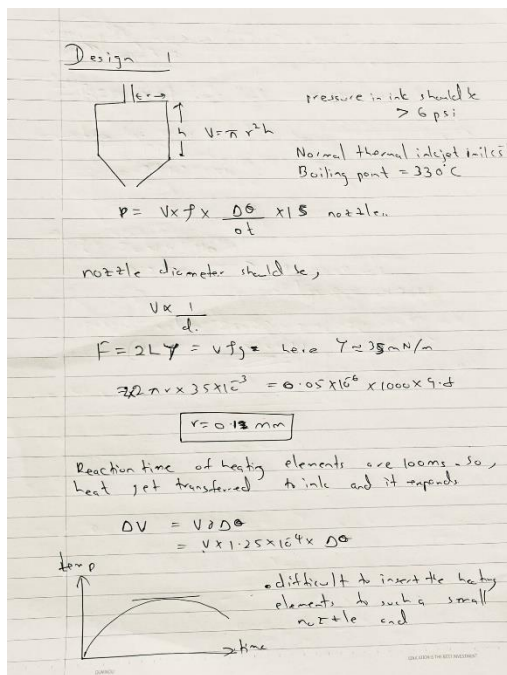 Design 1
r
h
V = π r²h
pressure in ink should be
> 6 psi
Normal thermal inkjet
Boiling point = 330°C
P = V × ρ × Δθ/Δt × 15 nozzle..
nozzle diameter should be,
V ∝ 1/d.
F = 2Lγ = vρg = here γ ≈ 35 mN/m
2πr × 35 × 10⁻³ = 0.05 × 10⁻⁶ × 1000 × 9.8
r = 0.13 mm
Reaction time of heating elements are 100ms. So,
heat get transferred to ink and it expands
ΔV = VγΔθ
= V × 1.25 × 10⁻⁴ × Δθ
temp
time
• difficult to insert the heating
elements to such a small
nozzle and